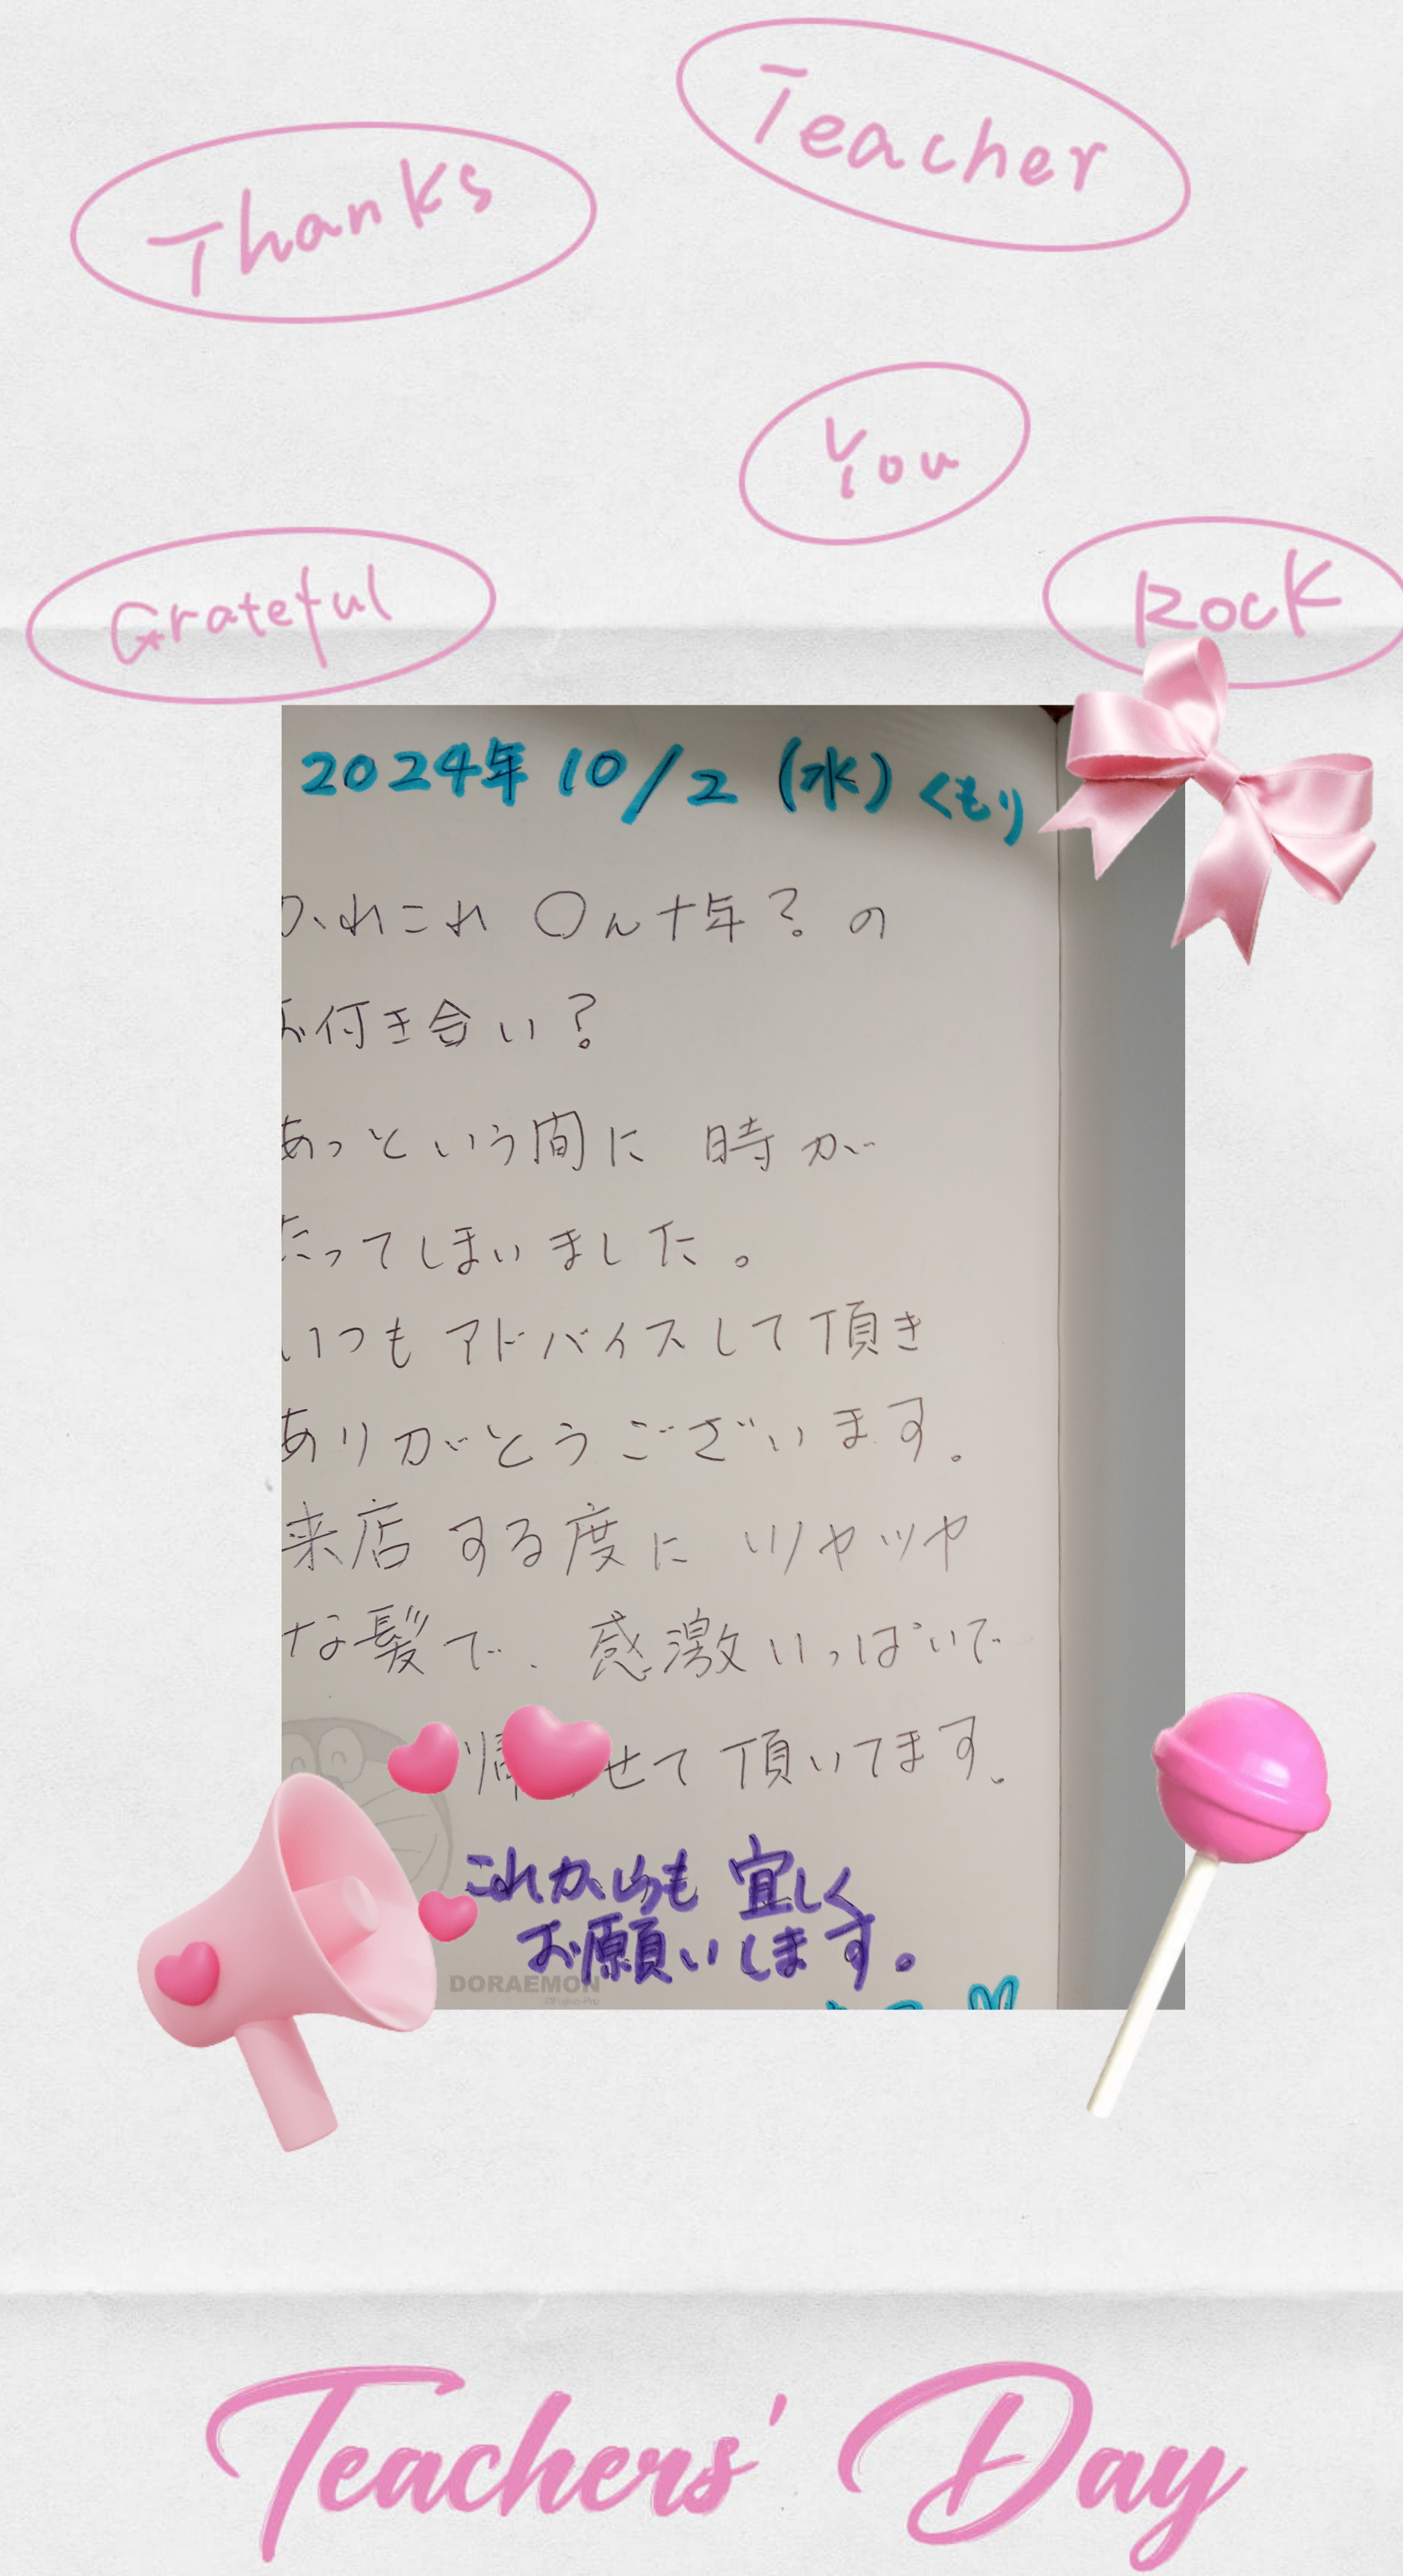 Teacher
Thanks
You
Grateful
Rock
2024年 10/2 (水) くもり
かれこれ 〇ん十年？の
お付き合い？
あっという間に 時が
たってしまいました。
いつも アドバイスして頂き
ありがとうございます。
来店する度に ツヤツヤ
な髪で、感激いっぱいで
帰 せて頂いてます。
これからも 宜しく
お願いします。
DORAEMON
Teachers' Day